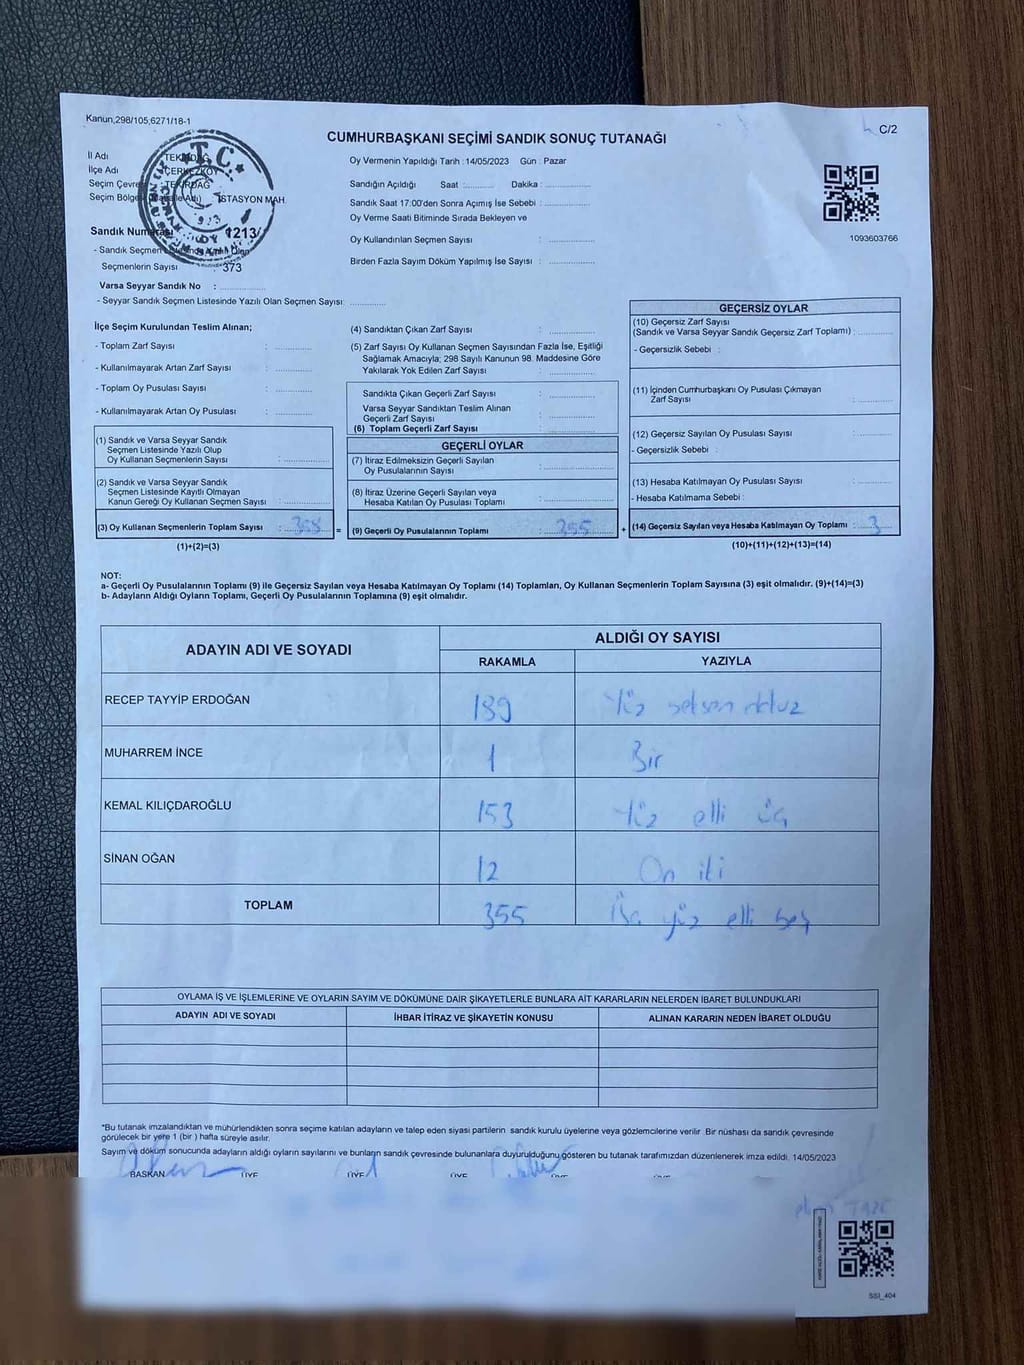 Kanun,298/105,6271/18-1
C/2
CUMHURBAŞKANI SEÇİMİ SANDIK SONUÇ TUTANAĞI
İl Adı TEKİRDAĞ
İlçe Adı ÇERKEZKÖY
Seçim Çevresi : TEKİRDAĞ
Seçim Bölgesi (Mahalle Adı) İSTASYON MAH.
T.C.
Sandık Numarası 1213
- Sandık Seçmen Listesinde Yazılı Olan
Seçmenlerin Sayısı : 373
Varsa Seyyar Sandık No :
- Seyyar Sandık Seçmen Listesinde Yazılı Olan Seçmen Sayısı:
Oy Vermenin Yapıldığı Tarih : 14/05/2023 Gün : Pazar
Sandığın Açıldığı Saat : Dakika :
Sandık Saat 17:00'den Sonra Açımış İse Sebebi :
Oy Verme Saati Bitiminde Sırada Bekleyen ve
Oy Kullandırılan Seçmen Sayısı :
Birden Fazla Sayım Döküm Yapılmış İse Sayısı :
1093603766
İlçe Seçim Kurulundan Teslim Alınan;
- Toplam Zarf Sayısı :
- Kullanılmayarak Artan Zarf Sayısı :
- Toplam Oy Pusulası Sayısı :
- Kullanılmayarak Artan Oy Pusulası :
(1) Sandık ve Varsa Seyyar Sandık
Seçmen Listesinde Yazılı Olup
Oy Kullanan Seçmenlerin Sayısı :
(2) Sandık ve Varsa Seyyar Sandık
Seçmen Listesinde Kayıtlı Olmayan
Kanun Gereği Oy Kullanan Seçmen Sayısı :
(3) Oy Kullanan Seçmenlerin Toplam Sayısı : 358 =
(1)+(2)=(3)
(4) Sandıktan Çıkan Zarf Sayısı :
(5) Zarf Sayısı Oy Kullanan Seçmen Sayısından Fazla İse, Eşitliği
Sağlamak Amacıyla; 298 Sayılı Kanunun 98. Maddesine Göre
Yakılarak Yok Edilen Zarf Sayısı :
Sandıkta Çıkan Geçerli Zarf Sayısı :
Varsa Seyyar Sandıktan Teslim Alınan
Geçerli Zarf Sayısı :
(6) Toplam Geçerli Zarf Sayısı :
GEÇERLİ OYLAR
(7) İtiraz Edilmeksizin Geçerli Sayılan
Oy Pusulalarının Sayısı :
(8) İtiraz Üzerine Geçerli Sayılan veya
Hesaba Katılan Oy Pusulası Toplamı :
(9) Geçerli Oy Pusulalarının Toplamı : 355 +
GEÇERSİZ OYLAR
(10) Geçersiz Zarf Sayısı
(Sandık ve Varsa Seyyar Sandık Geçersiz Zarf Toplamı) :
- Geçersizlik Sebebi :
(11) İçinden Cumhurbaşkanı Oy Pusulası Çıkmayan
Zarf Sayısı :
(12) Geçersiz Sayılan Oy Pusulası Sayısı :
- Geçersizlik Sebebi :
(13) Hesaba Katılmayan Oy Pusulası Sayısı :
- Hesaba Katılmama Sebebi :
(14) Geçersiz Sayılan veya Hesaba Katılmayan Oy Toplamı : 3
(10)+(11)+(12)+(13)=(14)
NOT:
a- Geçerli Oy Pusulalarının Toplamı (9) ile Geçersiz Sayılan veya Hesaba Katılmayan Oy Toplamı (14) Toplamları, Oy Kullanan Seçmenlerin Toplam Sayısına (3) eşit olmalıdır. (9)+(14)=(3)
b- Adayların Aldığı Oyların Toplamı, Geçerli Oy Pusulalarının Toplamına (9) eşit olmalıdır.
ADAYIN ADI VE SOYADI ALDIĞI OY SAYISI
RAKAMLA YAZIYLA
RECEP TAYYİP ERDOĞAN 189 Yüz seksen dokuz
MUHARREM İNCE 1 Bir
KEMAL KILIÇDAROĞLU 153 Yüz elli üç
SİNAN OĞAN 12 On iki
TOPLAM 355 Üç yüz elli beş
OYLAMA İŞ VE İŞLEMLERİNE VE OYLARIN SAYIM VE DÖKÜMÜNE DAİR ŞİKAYETLERLE BUNLARA AİT KARARLARIN NELERDEN İBARET BULUNDUKLARI
ADAYIN ADI VE SOYADI İHBAR İTİRAZ VE ŞİKAYETİN KONUSU ALINAN KARARIN NEDEN İBARET OLDUĞU
*Bu tutanak imzalandıktan ve mühürlendikten sonra seçime katılan adayların ve talep eden siyasi partilerin sandık kurulu üyelerine veya gözlemcilerine verilir. Bir nüshası da sandık çevresinde
görülecek bir yere 1 (bir ) hafta süreyle asılır.
Sayım ve döküm sonucunda adayların aldığı oyların sayılarını ve bunların sandık çevresinde bulunanlara duyurulduğunu gösteren bu tutanak tarafımızdan düzenlenerek imza edildi. 14/05/2023
BAŞKAN ÜYE ÜYE ÜYE ÜYE
SSI_404